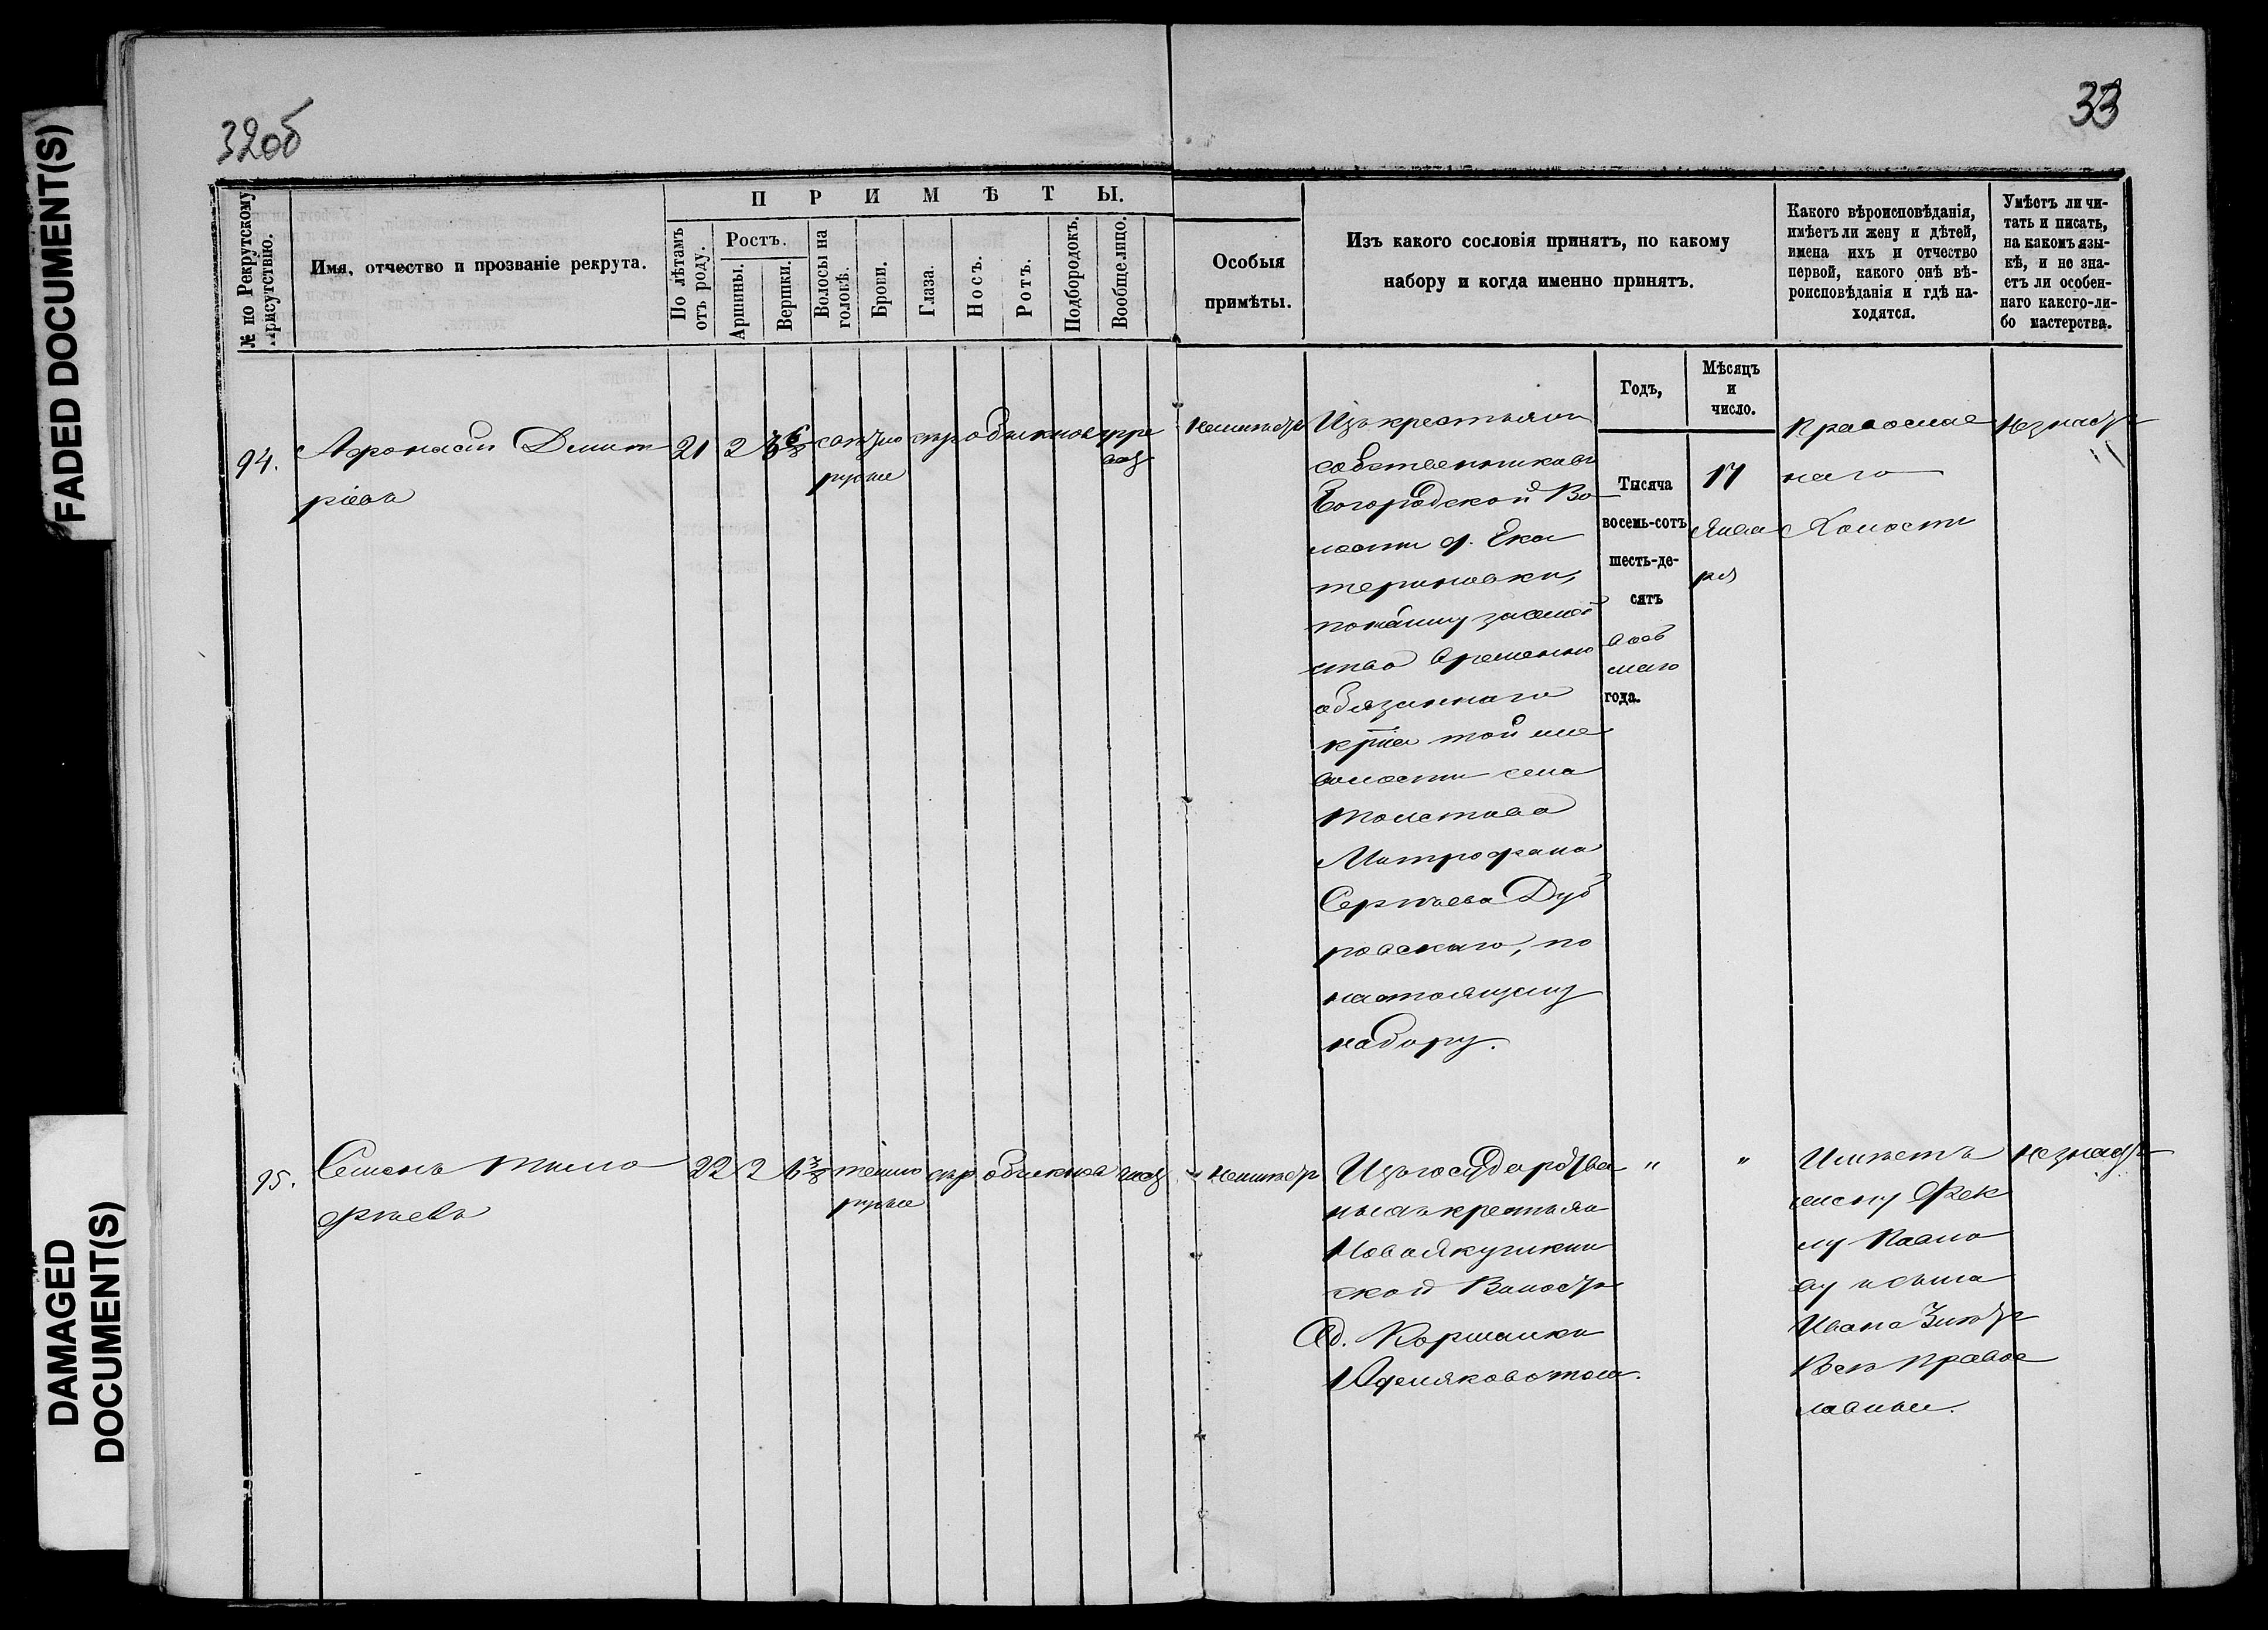 FADED DOCUMENT(S)
DAMAGED
DOCUMENT(S)
32об
33
№ по Рекрутскому
присутствію.
Имя, отчество и прозваніе рекрута.
ПРИМѢТЫ.
По лѣтамъ
отъ роду.
Ростъ.
Аршины.
Вершки.
Волосы на
головѣ.
Брови.
Глаза.
Носъ.
Ротъ.
Подбородокъ.
Вообще лицо.
Особыя
примѣты.
Изъ какого сословія принятъ, по какому
набору и когда именно принятъ.
Какого вѣроисповѣданія,
имѣетъ ли жену и дѣтей,
имена ихъ и отчество
первой, какого онѣ вѣ-
роисповѣданія и гдѣ на-
ходятся.
Умѣетъ ли чи-
тать и писать,
на какомъ язы-
кѣ, и не зна-
етъ ли особен-
наго какого-ли-
бо мастерства.
Годъ,
Мѣсяцъ
и
число.
94.
Афонасій Димит
ріевъ
21
2
русые
сѣр
обыкнов
Неимѣетъ
Изъ крестьянъ
собственниковъ
Богородской Во
лости д. Ека
териновки,
обязаннаго
кр̃на той же
волости села
Толстова
Митрофана
Сергѣева Дуб
ровскаго, по
настоящему
набору.
Тысяча
восемь-сотъ
шесть-де-
сятъ
вось
маго
года.
17
Янва
ря
Православ
наго
Холостъ
Незнаетъ
95.
Семенъ Тимо
фѣевъ
22
2
темно
русые
сѣр
обыкнов
чист
Неимѣетъ
Изъ государстве
ныхъ крестьян
Новоякушкин
ской Волости
д.
"
"
Имѣетъ
жену Фек
лу Павло
ву и сына
Ивана 3 лѣтъ
Всѣ правос
лавные.
Незнаетъ